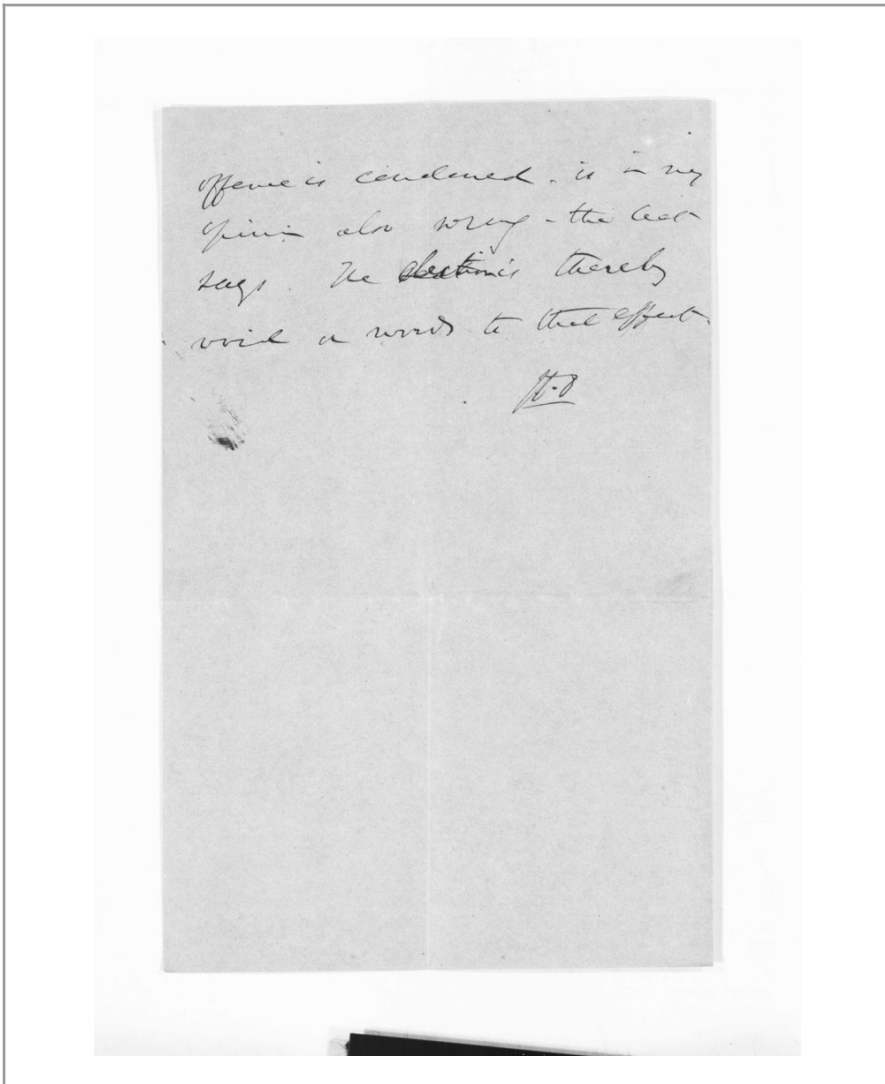 offence is condoned. is in my
opinion also wrong - the Act
says. The election is thereby
void or words to that effect.